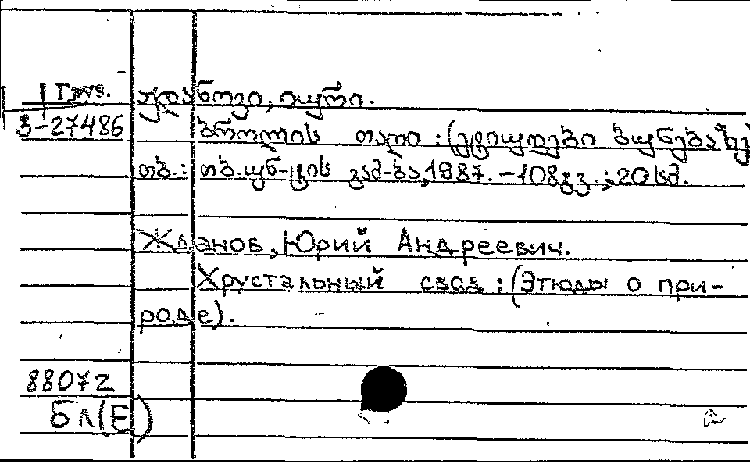 Груз.
ჟდანოვი, იური.
3-27486
ბროლის თაღი : (ეტიუდები ბუნებაზე
თბ. : თბ. უნ-ტის გამ-ბა, 1987. - 108 გვ. ; 20 სმ.
Жданов, Юрий Андреевич.
Хрустальный свод : (Этюды о при-
роде).
88072
Бл(Е)